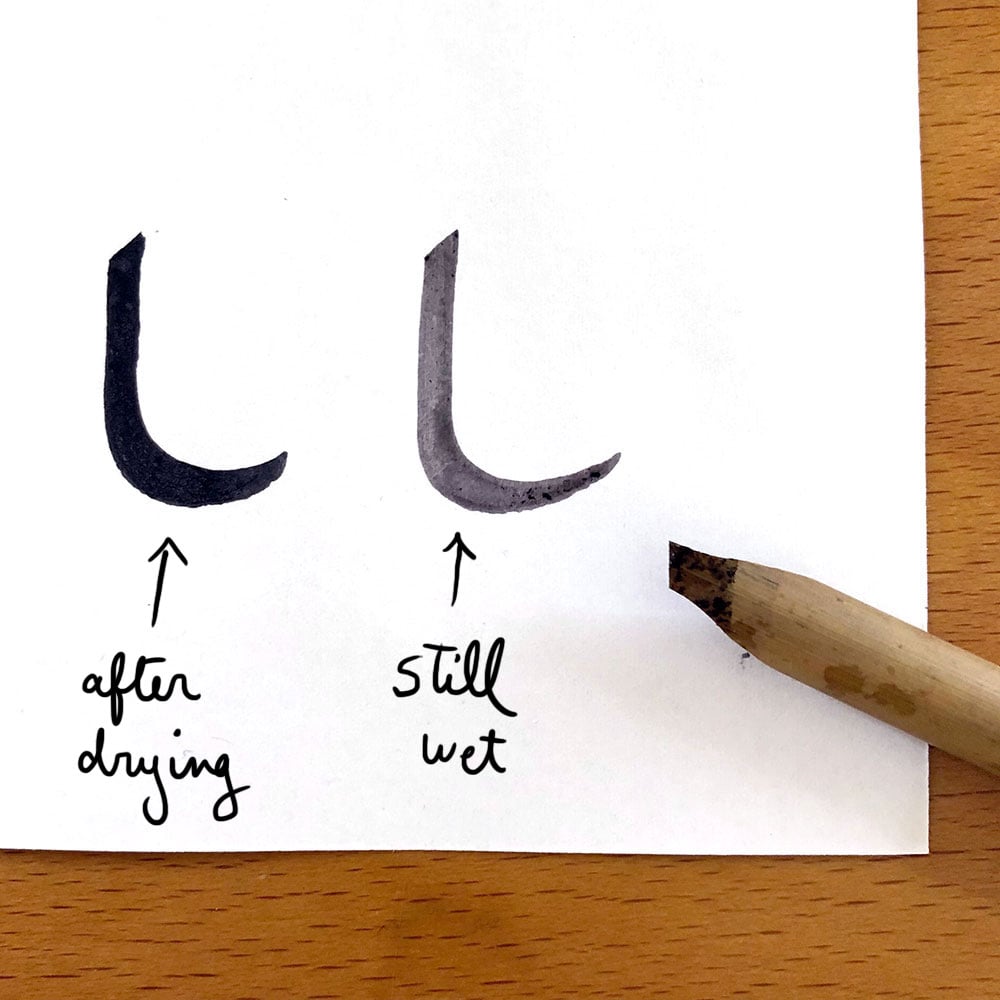 after
drying
still
wet